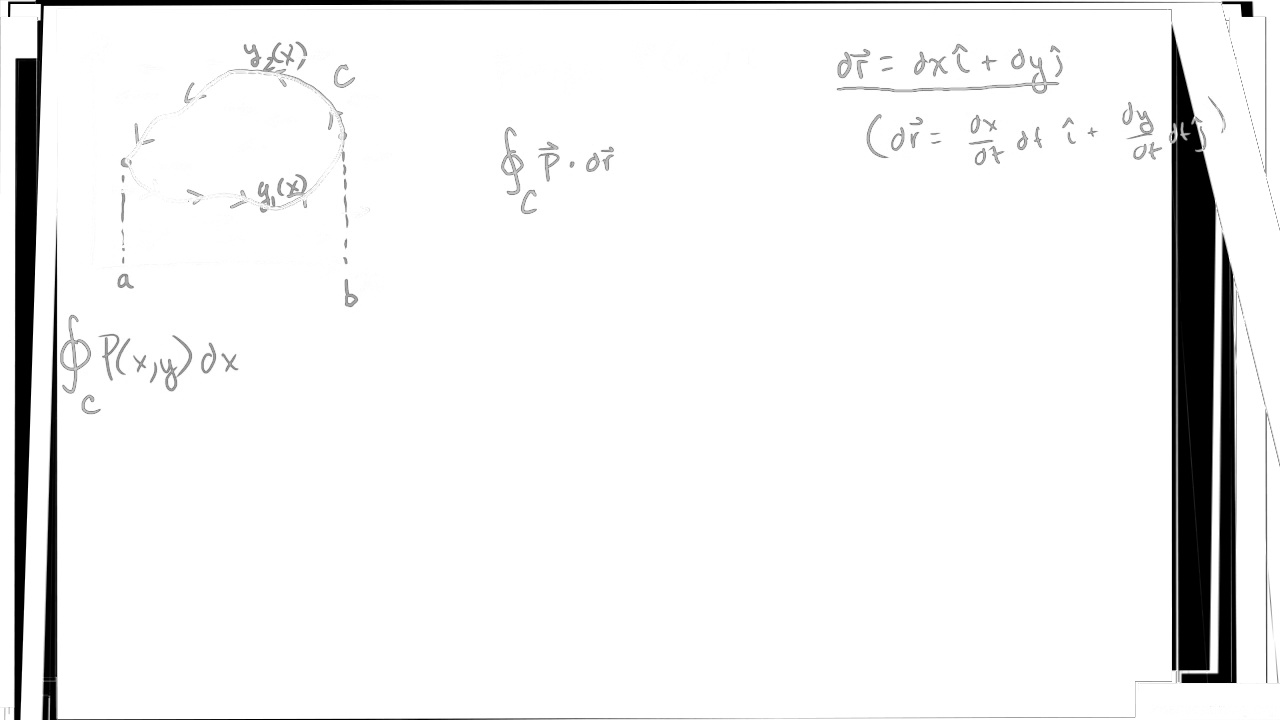 y₂(x)
C
y₁(x)
a
b
∮_C P⃗ · dr⃗
dr⃗ = dx î + dy ĵ
(dr⃗ = dx/dt dt î + dy/dt dt ĵ)
∮_C P(x,y) dx